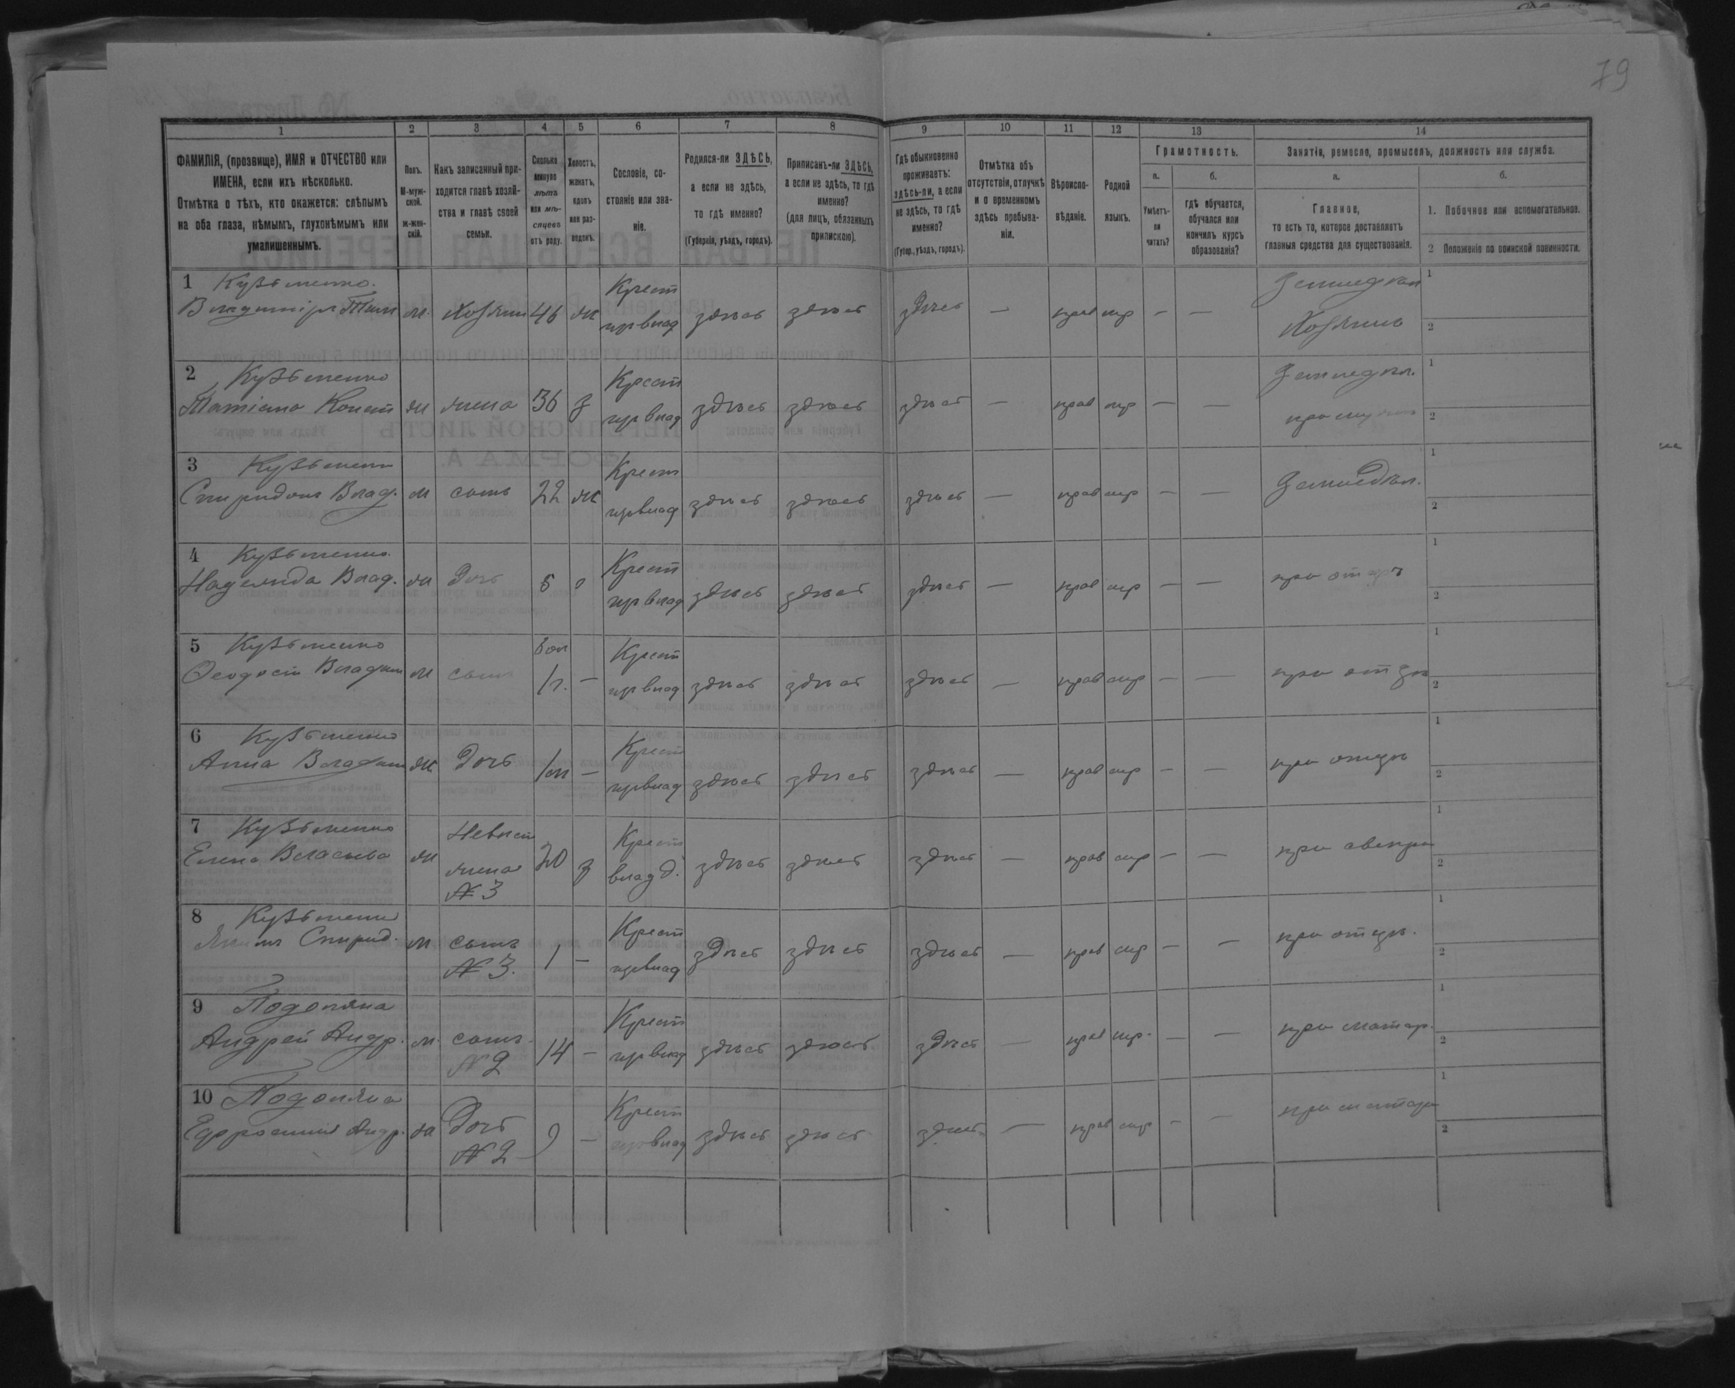 79
1 2 3 4 5 6 7 8 9 10 11 12 13 14
ФАМИЛІЯ, (прозвище), ИМЯ и ОТЧЕСТВО или
ИМЕНА, если ихъ нѣсколько.
Отмѣтка о тѣхъ, кто окажется: слѣпымъ
на оба глаза, нѣмымъ, глухонѣмымъ или
умалишеннымъ.
Полъ.
М-муж-
ской.
ж-жен-
скій.
Какъ записанный при-
ходится главѣ хозяй-
ства и главѣ своей
семьи.
Сколько
минуло
лѣтъ
или мѣ-
сяцевъ
отъ роду.
Холостъ,
женатъ,
вдовъ
или раз-
веденъ.
Сословіе, со-
стояніе или зва-
ніе.
Родился-ли ЗДѢСЬ,
а если не здѣсь,
то гдѣ именно?
(Губернія, уѣздъ, городъ).
Приписанъ-ли ЗДѢСЬ,
а если не здѣсь, то гдѣ
именно?
(для лицъ, обязанныхъ
припискою).
Гдѣ обыкновенно
проживаетъ:
здѣсь-ли, а если
не здѣсь, то гдѣ
именно?
(Губер., уѣздъ, городъ).
Отмѣтка объ
отсутствіи, отлучкѣ
и о временномъ
здѣсь пребыва-
ніи.
Вѣроиспо-
вѣданіе.
Родной
языкъ.
Грамотность.
а.
Умѣетъ-
ли
читать?
б.
гдѣ обучается,
обучался или
кончилъ курсъ
образованія?
Занятіе, ремесло, промыселъ, должность или служба.
а.
Главное,
то есть то, которое доставляетъ
главныя средства для существованія.
б.
1. Побочное или вспомогательное.
2 Положеніе по воинской повинности.
1 Кузьменко Крест Земледѣл 1
Владиміръ Тим м. Хозяин 46 ж здѣсь здѣсь здѣсь — прав мр — — Хозяинъ 2
2 Кузьменко Крест Земледѣл. 1
Татіана Конст ж жена 36 з здѣсь здѣсь здѣсь — прав мр — — 2
3 Кузьменко Крест 1
Спиридонъ Влад. м сынъ 22 ж здѣсь здѣсь здѣсь — прав мр — — Земледѣл. 2
4 Кузьменко Крест 1
Надежда Влад. ж Дочь здѣсь здѣсь здѣсь — прав мр — — при отцѣ 2
5 Кузьменко Крест 1
Ѳеодосій Владим м сынъ 1г. — здѣсь здѣсь здѣсь — прав мр — — при отцѣ 2
6 Кузьменко Крест 1
Анна Владим ж Дочь 1м — здѣсь здѣсь здѣсь — прав мр — — при отцѣ 2
7 Кузьменко Невѣст Крест 1
Елена Власьева ж жена 20 з влад. здѣсь здѣсь здѣсь — прав мр — — при свекрѣ 2
№ 3
8 Кузьменко Крест 1
Спирид. м сынъ 1 — здѣсь здѣсь здѣсь — прав мр — — при отцѣ. 2
№ 3.
9 Крест 1
Андрей Андр. м. сынъ 14 — здѣсь здѣсь здѣсь — прав мр. — — при матер. 2
№ 2
10 Крест 1
Ефросинія Андр. ж Дочь 9 — здѣсь здѣсь здѣсь — прав мр — — при матери 2
№ 2